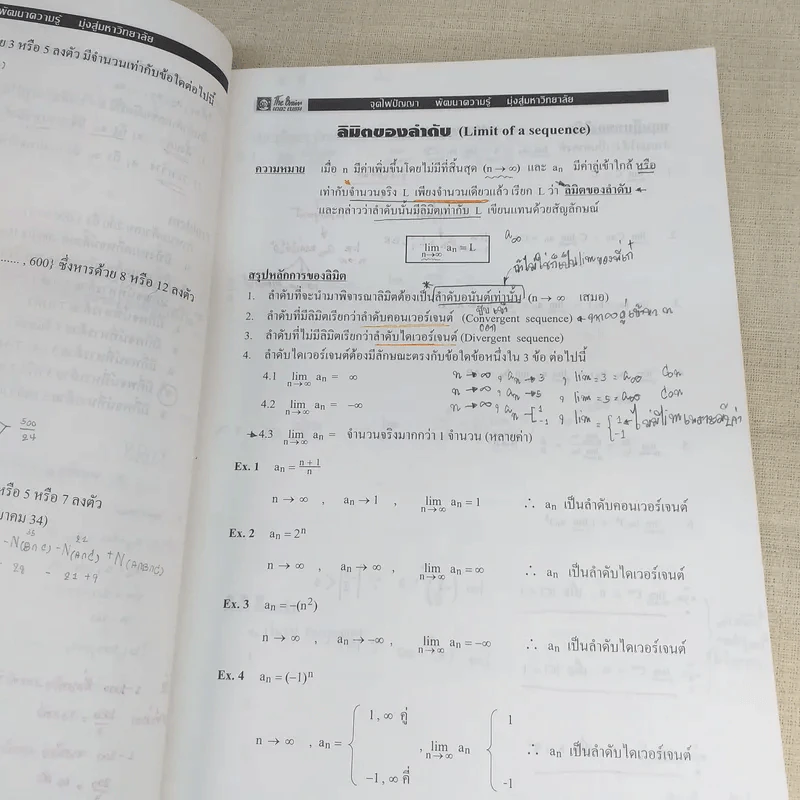 พัฒนาความรู้ มุ่งสู่มหาวิทยาลัย
3 หรือ 5 ลงตัว มีจำนวนเท่ากับข้อใดต่อไปนี้
........ , 600} ซึ่งหารด้วย 8 หรือ 12 ลงตัว
500
24
หรือ 5 หรือ 7 ลงตัว
าคม 34)
21
-N(BnC) -N(AnC) +N(AnBnC)
28 - 21 +9
The Brain
จุดไฟปัญญา พัฒนาความรู้ มุ่งสู่มหาวิทยาลัย
ลิมิตของลำดับ (Limit of a sequence)
ความหมาย เมื่อ n มีค่าเพิ่มขึ้นโดยไม่มีที่สิ้นสุด (n → ∞) และ aₙ มีค่าลู่เข้าใกล้ หรือ
เท่ากับจำนวนจริง L เพียงจำนวนเดียวแล้ว เรียก L ว่า ลิมิตของลำดับ
และกล่าวว่าลำดับนั้นมีลิมิตเท่ากับ L เขียนแทนด้วยสัญลักษณ์
lim n→∞ aₙ = L
a∞
สรุปหลักการของลิมิต
1. ลำดับที่จะนำมาพิจารณาลิมิตต้องเป็นลำดับอนันต์เท่านั้น (n → ∞ เสมอ)
2. ลำดับที่มีลิมิตเรียกว่าลำดับคอนเวอร์เจนต์ (Convergent sequence)
3. ลำดับที่ไม่มีลิมิตเรียกว่าลำดับไดเวอร์เจนต์ (Divergent sequence)
4. ลำดับไดเวอร์เจนต์ต้องมีลักษณะตรงกับข้อใดข้อหนึ่งใน 3 ข้อ ต่อไปนี้
4.1 lim n→∞ aₙ = ∞
n → ∞ , aₙ → 3 , lim = 3 = a∞ Con
n → ∞ , aₙ → 5 , lim = 5 = a∞ Con
4.2 lim n→∞ aₙ = −∞
n → ∞ , aₙ { 1 -1 , lim = { 1 -1
4.3 lim n→∞ aₙ = จำนวนจริงมากกว่า 1 จำนวน (หลายค่า)
Ex. 1 aₙ = (n+1)/n
n → ∞ , aₙ → 1 , lim n→∞ aₙ = 1 ∴ aₙ เป็นลำดับคอนเวอร์เจนต์
Ex. 2 aₙ = 2ⁿ
n → ∞ , aₙ → ∞ , lim n→∞ aₙ = ∞ ∴ aₙ เป็นลำดับไดเวอร์เจนต์
Ex. 3 aₙ = −(n²)
n → ∞ , aₙ → −∞ , lim n→∞ aₙ = −∞ ∴ aₙ เป็นลำดับไดเวอร์เจนต์
Ex. 4 aₙ = (−1)ⁿ
1 , ∞ คู่ 1
n → ∞ , aₙ = , lim n→∞ aₙ ∴ aₙ เป็นลำดับไดเวอร์เจนต์
−1 , ∞ คี่ -1